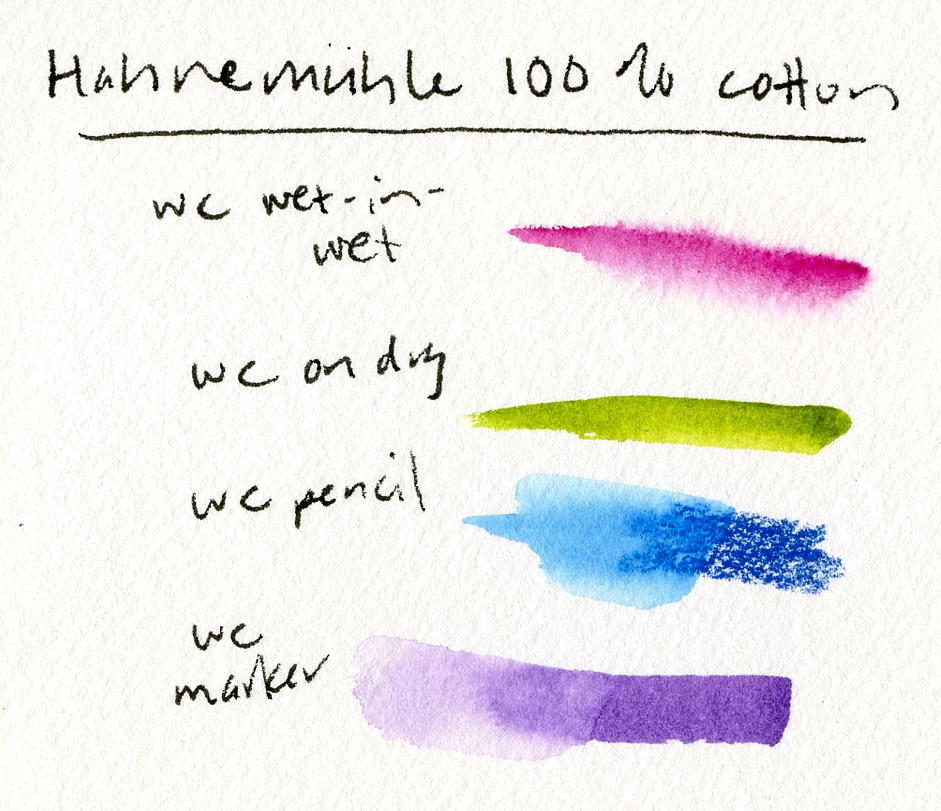 Hahnemühle 100% cotton
wc wet-in-
wet
wc on dry
wc pencil
wc
marker